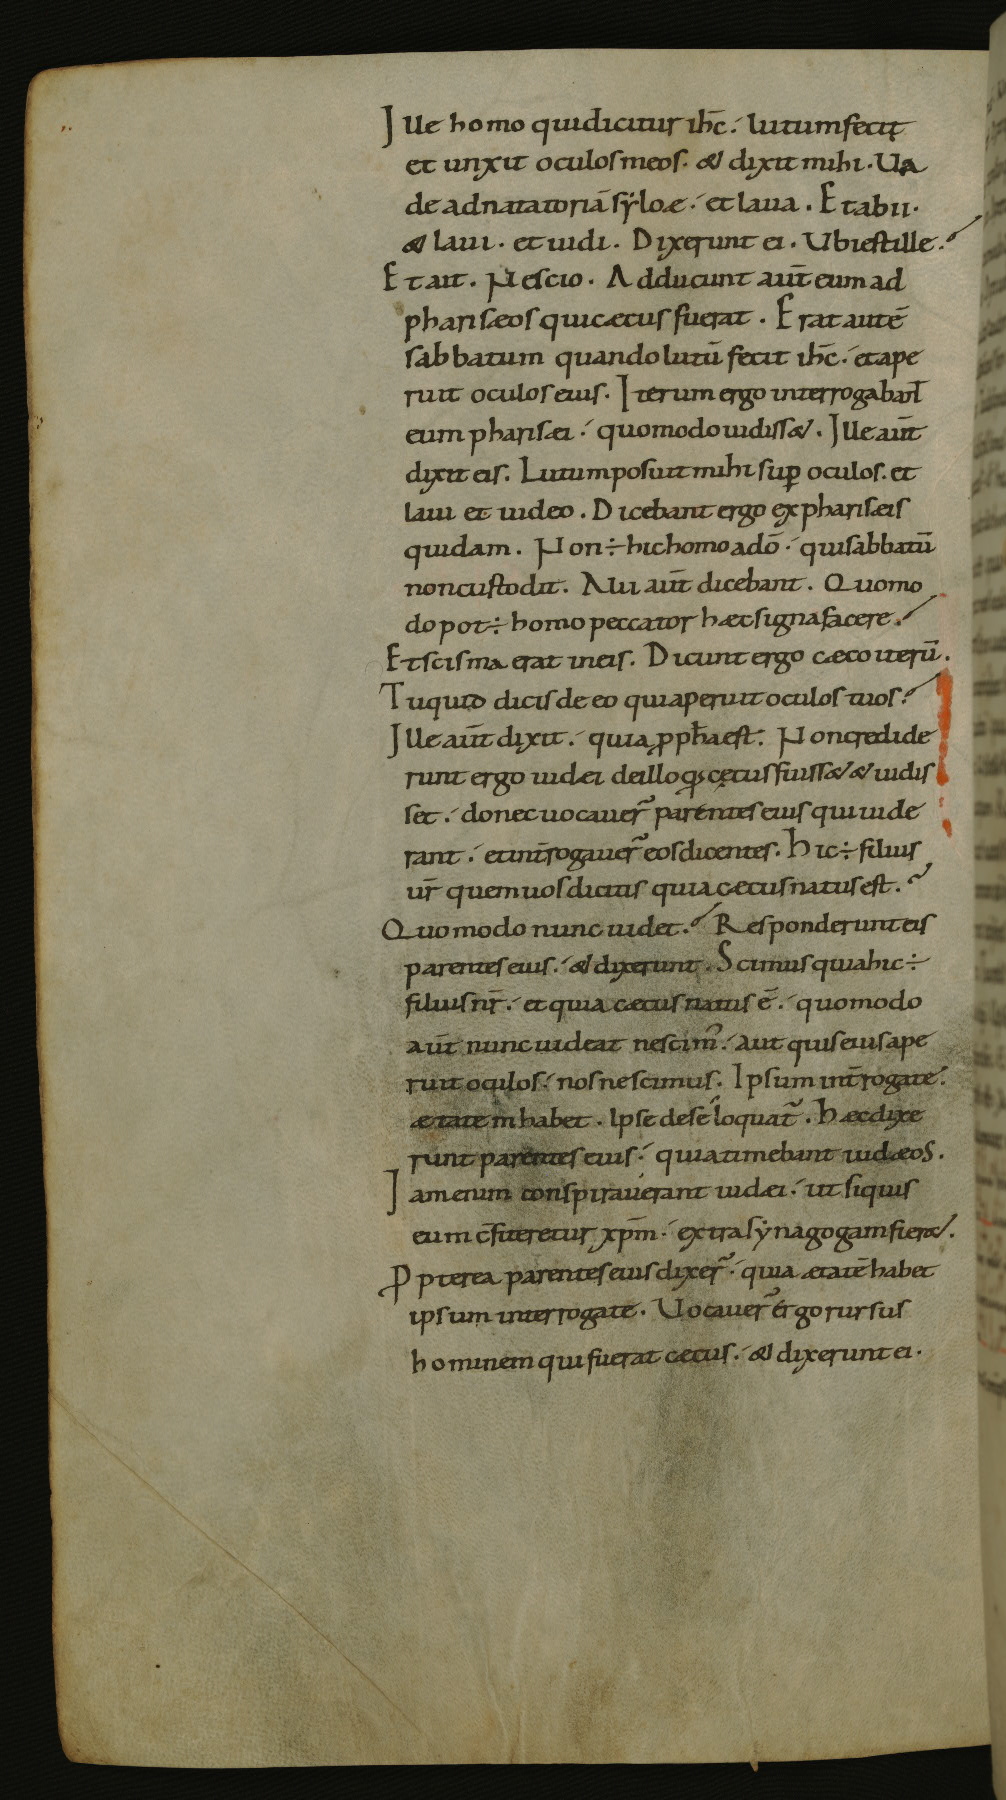 Ille homo qui dicitur ihc̄. lutum fecit
et unxit oculos meos. & dixit mihi. Ua
de ad natatoriā sẏloæ. et laua. Et abii.
& laui. et uidi. Dixerunt ei. Ubi est ille.
Et ait. Nescio. Adducunt aut̄ eum ad
pharisæos qui cæcus fuerat. Erat autē
sabbatum quando lutū fecit ihc̄. et ape
ruit oculos eius. Iterum ergo interrogaban̄t
eum pharisæi. quomodo uidiss&. Ille aut̄
dixit eis. Lutum posuit mihi sup̄ oculos. et
laui et uideo. Dicebant ergo ex pharisæis
quidam. Non ÷ hic homo a dō. qui sabbatū
non custodit. Alii aut̄ dicebant. Quomo
do pot÷ homo peccator hæc signa facere.
Et scisma erat in eis. Dicunt ergo cæco iterū.
Tu quid dicis de eo qui aperuit oculos tuos.
Ille aut̄ dixit. quia ꝓph̄a est. Non credide
runt ergo iudæi de illo qꝫ cęcus fuiss& & uidis
set. donec uocauer̄ parentes eius qui uide
rant. et int̄rogauer̄ eos dicentes. Hic ÷ filius
ur̄ quem uos dicitis quia cæcus natus est.
Quomodo nunc uidet. Responderunt eis
parentes eius. & dixerunt. Scimus quia hic ÷
filius nr̄. et quia cæcus natus ē. quomodo
aut̄ nunc uideat nescim̄. aut quis eius ape
ruit oculos. nos nescimus. Ipsum int̄rogate.
ætatem habet. Ipse de se loquat̄. Hæc dixe
runt parentes eius. quia timebant iudæos.
Iam enim conspirauerant iudæi. ut si quis
eum c̄fiteretur xp̄m. extra sẏnagogam fier&.
Ꝓpterea parentes eius dixer̄. quia ætatē habet
ipsum interrogate. Uocauer̄ ergo rursus
hominem qui fuerat cæcus. & dixerunt ei.